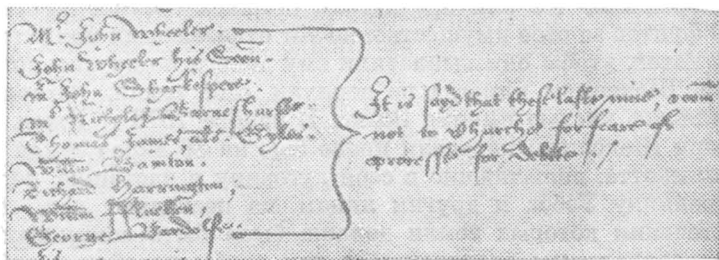 Mr. John Wheeler.
John Wheeler his Soon.
Mr John Shackespere.
Mr Nicholas Barneshurste.
Thomas James, alias Gyles.
William Bainton.
Richard Harrington,
William Fluellen,
George Bardolfe.
It is sayd that these laste nine, coom
not to Churche for feare of
processe for debtte./